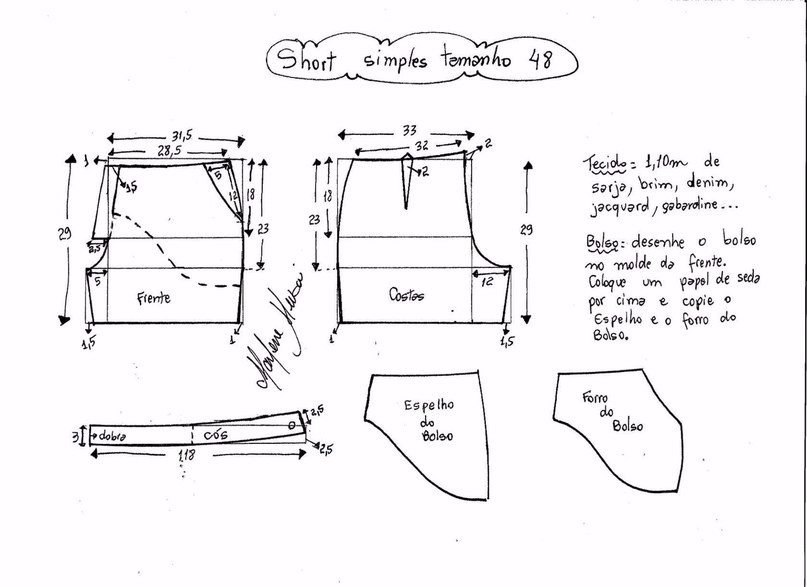 Short simples temanho 48
31,5
28,5
1
1,5
5
12
18
23
29
2,5
5
Frente
1,5
1
33
32
2
2
18
23
29
Costas
12
1
1,5
Tecido = 1,10m de
sarja, brim, denim,
jacquard, gabardine...
Bolso = desenhe o bolso
no molde da frente.
Coloque um papel de seda
por cima e copie o
Espelho e o forro do
Bolso.
3
dobra
cós
2,5
2,5
118
Espelho
do
Bolso
Forro
do
Bolso